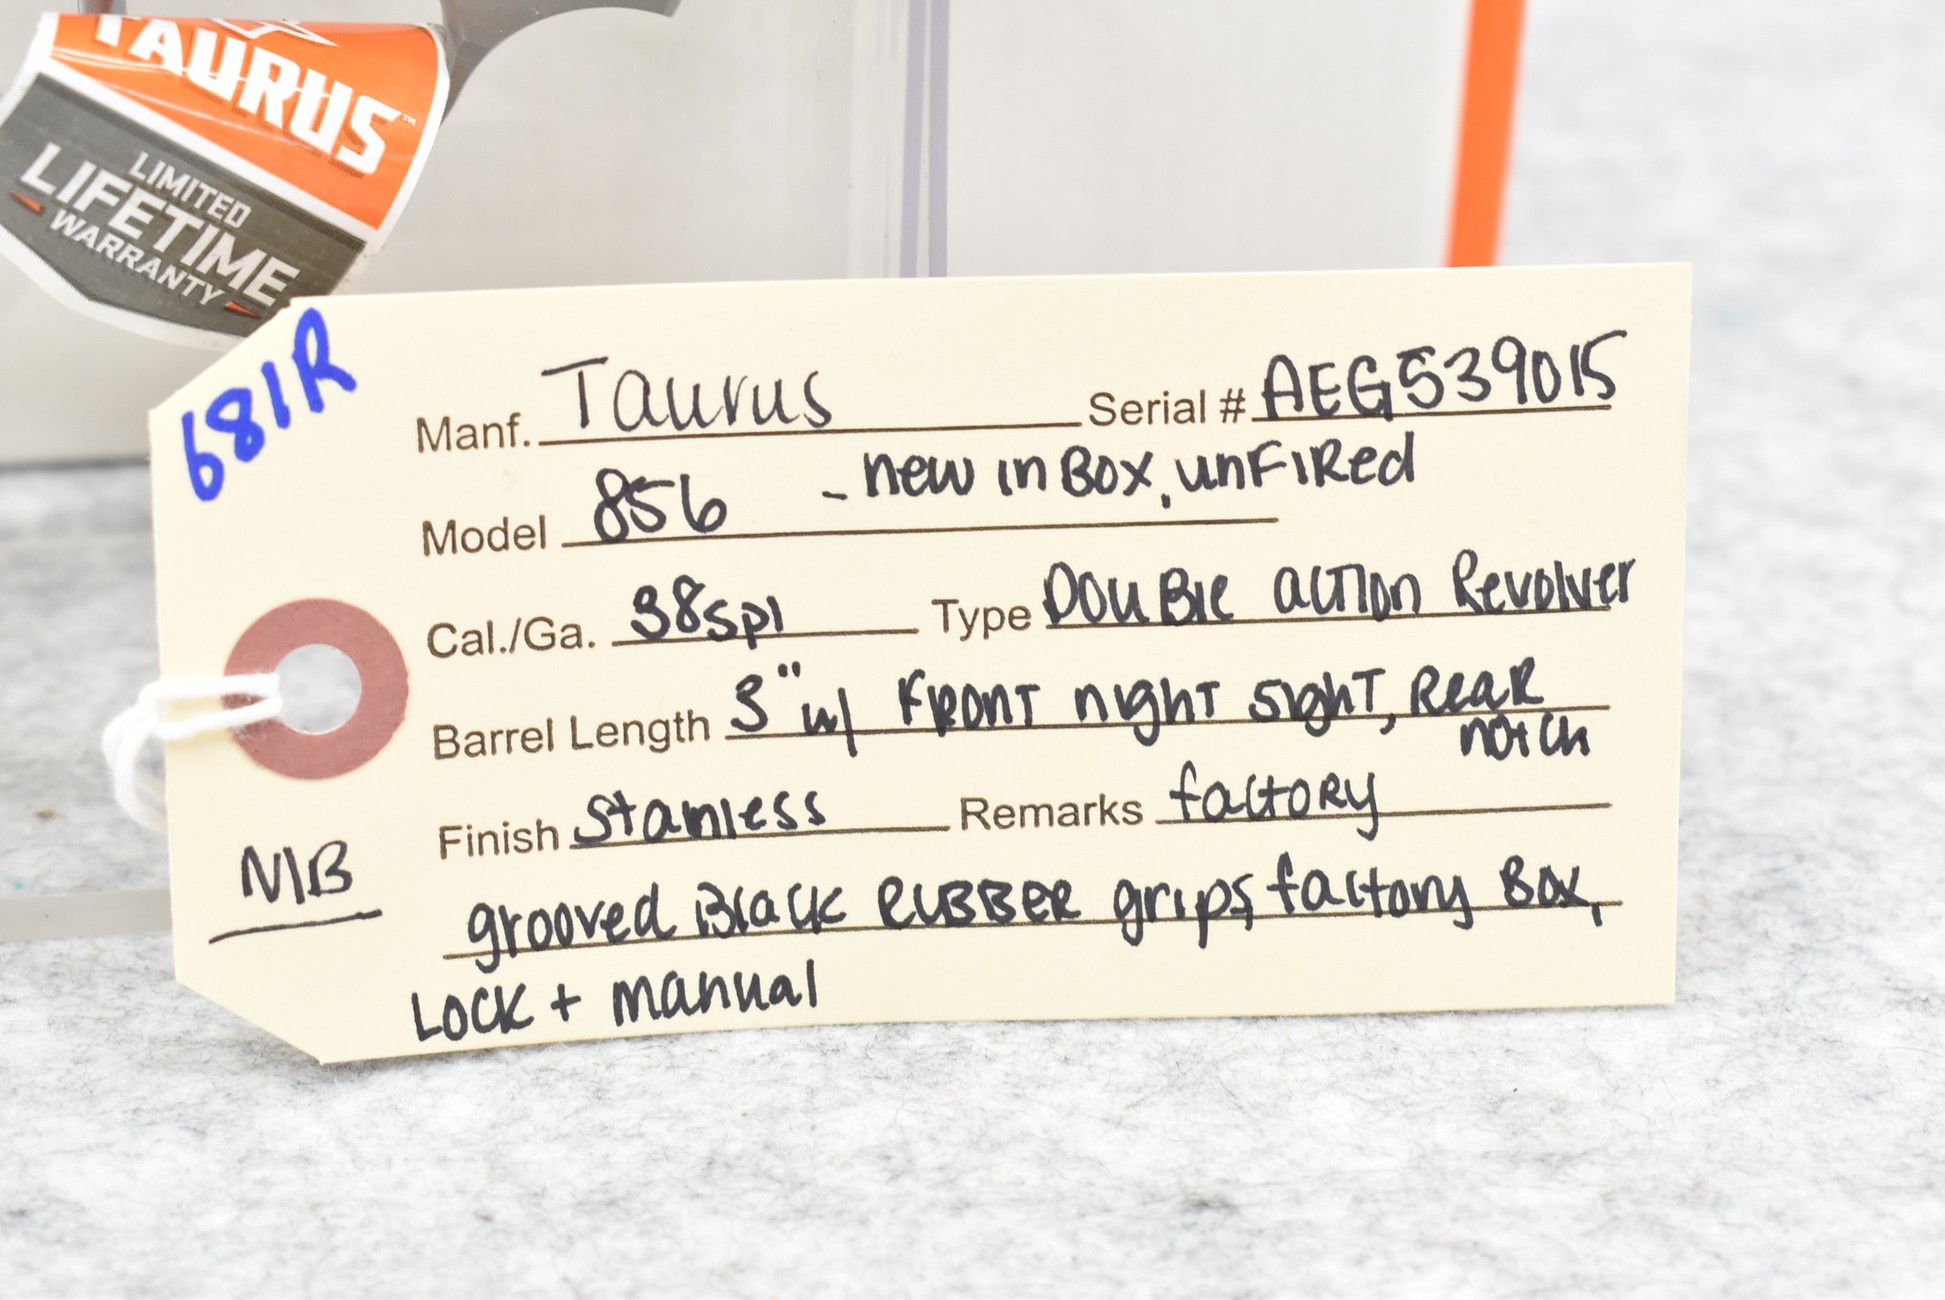 TAURUS™
LIMITED
LIFETIME
WARRANTY
681R
Manf. Taurus Serial # AEG539015
Model 856 - new in Box, unFIRed
Cal./Ga. 38spl Type DOUBLE action Revolver
Barrel Length 3" w/ FRONT night sight, Rear
notch
Finish Stainless Remarks factory
NIB
grooved Black RUBBER grips, factory Box,
LOCK + manual